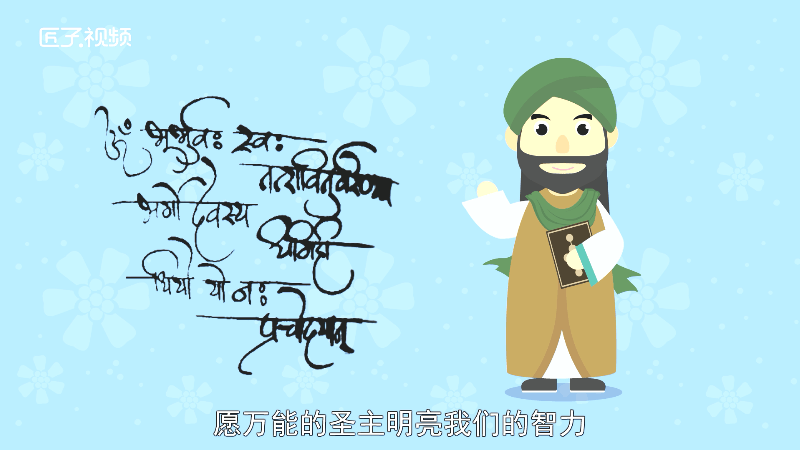 匠子.视频
ॐ भूर्भुवः स्वः
तत्सवितुर्वरेण्यं
भर्गो देवस्य
धीमहि
धियो यो नः
प्रचोदयात्
愿万能的圣主明亮我们的智力